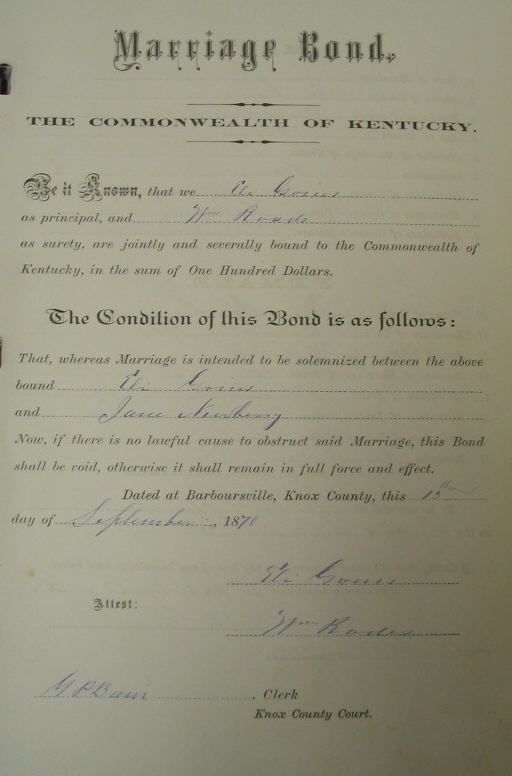 Marriage Bond.
THE COMMONWEALTH OF KENTUCKY.
Be it Known, that we Eli Goins
as principal, and Wm Roads
as surety, are jointly and severally bound to the Commonwealth of
Kentucky, in the sum of One Hundred Dollars.
The Condition of this Bond is as follows:
That, whereas Marriage is intended to be solemnized between the above
bound Eli Goins
and Jane Newberry
Now, if there is no lawful cause to obstruct said Marriage, this Bond
shall be void, otherwise it shall remain in full force and effect.
Dated at Barboursville, Knox County, this
day of September, 1870
Eli Goins
Attest:
Wm
Clerk
Knox County Court.